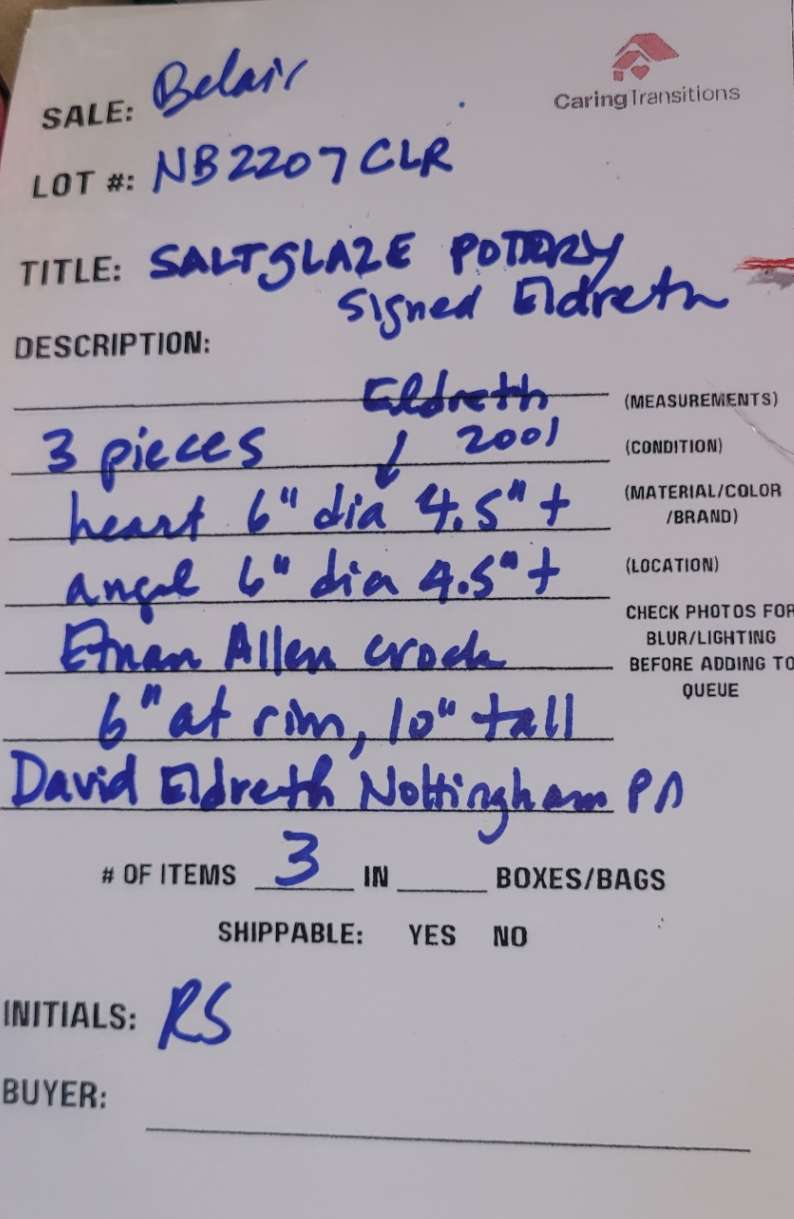 CaringTransitions
SALE: Belair
LOT #: NB2207CLR
TITLE: SALTGLAZE POTTERY
Signed Eldreth
DESCRIPTION:
Eldreth (MEASUREMENTS)
3 pieces ↓ 2001 (CONDITION)
heart 6" dia 4.5"t (MATERIAL/COLOR
/BRAND)
angel 6" dia 4.5"t (LOCATION)
CHECK PHOTOS FOR
BLUR/LIGHTING
BEFORE ADDING TO
QUEUE
Ethan Allen crock
6" at rim, 10" tall
David Eldreth Nottingham PA
# OF ITEMS 3 IN BOXES/BAGS
SHIPPABLE: YES NO
INITIALS: RS
BUYER: